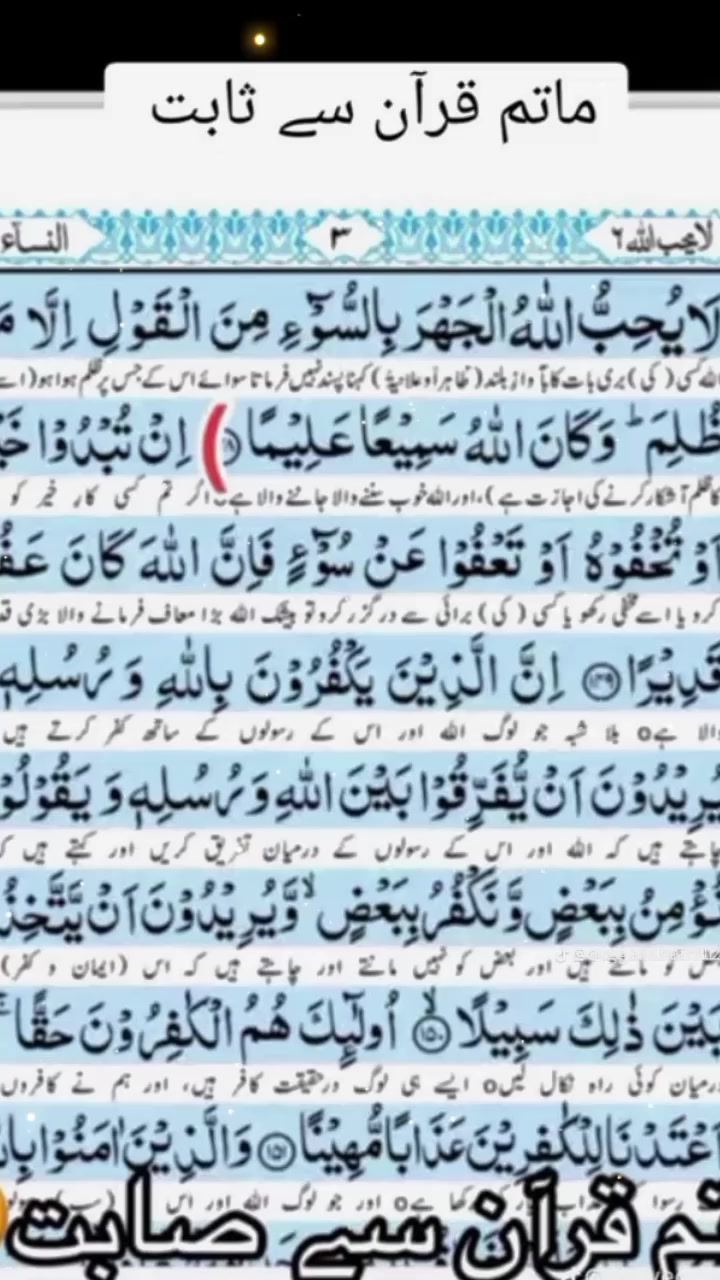 ماتم قرآن سے ثابت
لایحب الله ٦
٣
النسآء
لَا يُحِبُّ اللّٰهُ الْجَهْرَ بِالسُّوْٓءِ مِنَ الْقَوْلِ اِلَّا مَ
اللہ کسی (کی) بری بات کا بآواز بلند (ظاہراً و علانیۃً) کہنا پسند نہیں فرماتا سوائے اس کے جس پر ظلم ہوا ہو (اسے
ظُلِمَ ؕ وَكَانَ اللّٰهُ سَمِيْعًا عَلِيْمًا اِنْ تُبْدُوْا خَ
ظلم آشکار کرنے کی اجازت ہے)، اور اللہ خوب سننے والا جاننے والا ہے اگر تم کسی کار خیر کو
اَوْ تُخْفُوْهُ اَوْ تَعْفُوْا عَنْ سُوْٓءٍ فَاِنَّ اللّٰهَ كَانَ عَفُ
کرو یا اسے مخفی رکھو یا کسی (کی) برائی سے درگزر کرو تو بیشک اللہ بڑا معاف فرمانے والا بڑی قد
قَدِيْرًا ﴿۱۴۹﴾ اِنَّ الَّذِيْنَ يَكْفُرُوْنَ بِاللّٰهِ وَ رُسُلِهٖ
والا ہےo بلا شبہ جو لوگ اللہ اور اس کے رسولوں کے ساتھ کفر کرتے ہیں
يُرِيْدُوْنَ اَنْ يُّفَرِّقُوْا بَيْنَ اللّٰهِ وَ رُسُلِهٖ وَ يَقُوْلُوْ
چاہتے ہیں کہ اللہ اور اس کے رسولوں کے درمیان تفریق کریں اور کہتے ہیں ک
نُؤْمِنُ بِبَعْضٍ وَّ نَكْفُرُ بِبَعْضٍ ۙ وَّ يُرِيْدُوْنَ اَنْ يَّتَّخِذُ
بعض کو مانتے ہیں اور بعض کو نہیں مانتے اور چاہتے ہیں کہ اس (ایمان و کفر)
بَيْنَ ذٰلِكَ سَبِيْلًا ﴿۱۵۰﴾ اُولٰٓئِكَ هُمُ الْكٰفِرُوْنَ حَقًّا
درمیان کوئی راہ نکال لیںo ایسے ہی لوگ درحقیقت کافر ہیں، اور ہم نے کافروں
اَعْتَدْنَا لِلْكٰفِرِيْنَ عَذَابًا مُّهِيْنًا ﴿۱۵۱﴾ وَ الَّذِيْنَ اٰمَنُوْا بِا
رکھا ہےo اور جو لوگ اللہ اور اس
تم قرآن سے صابت